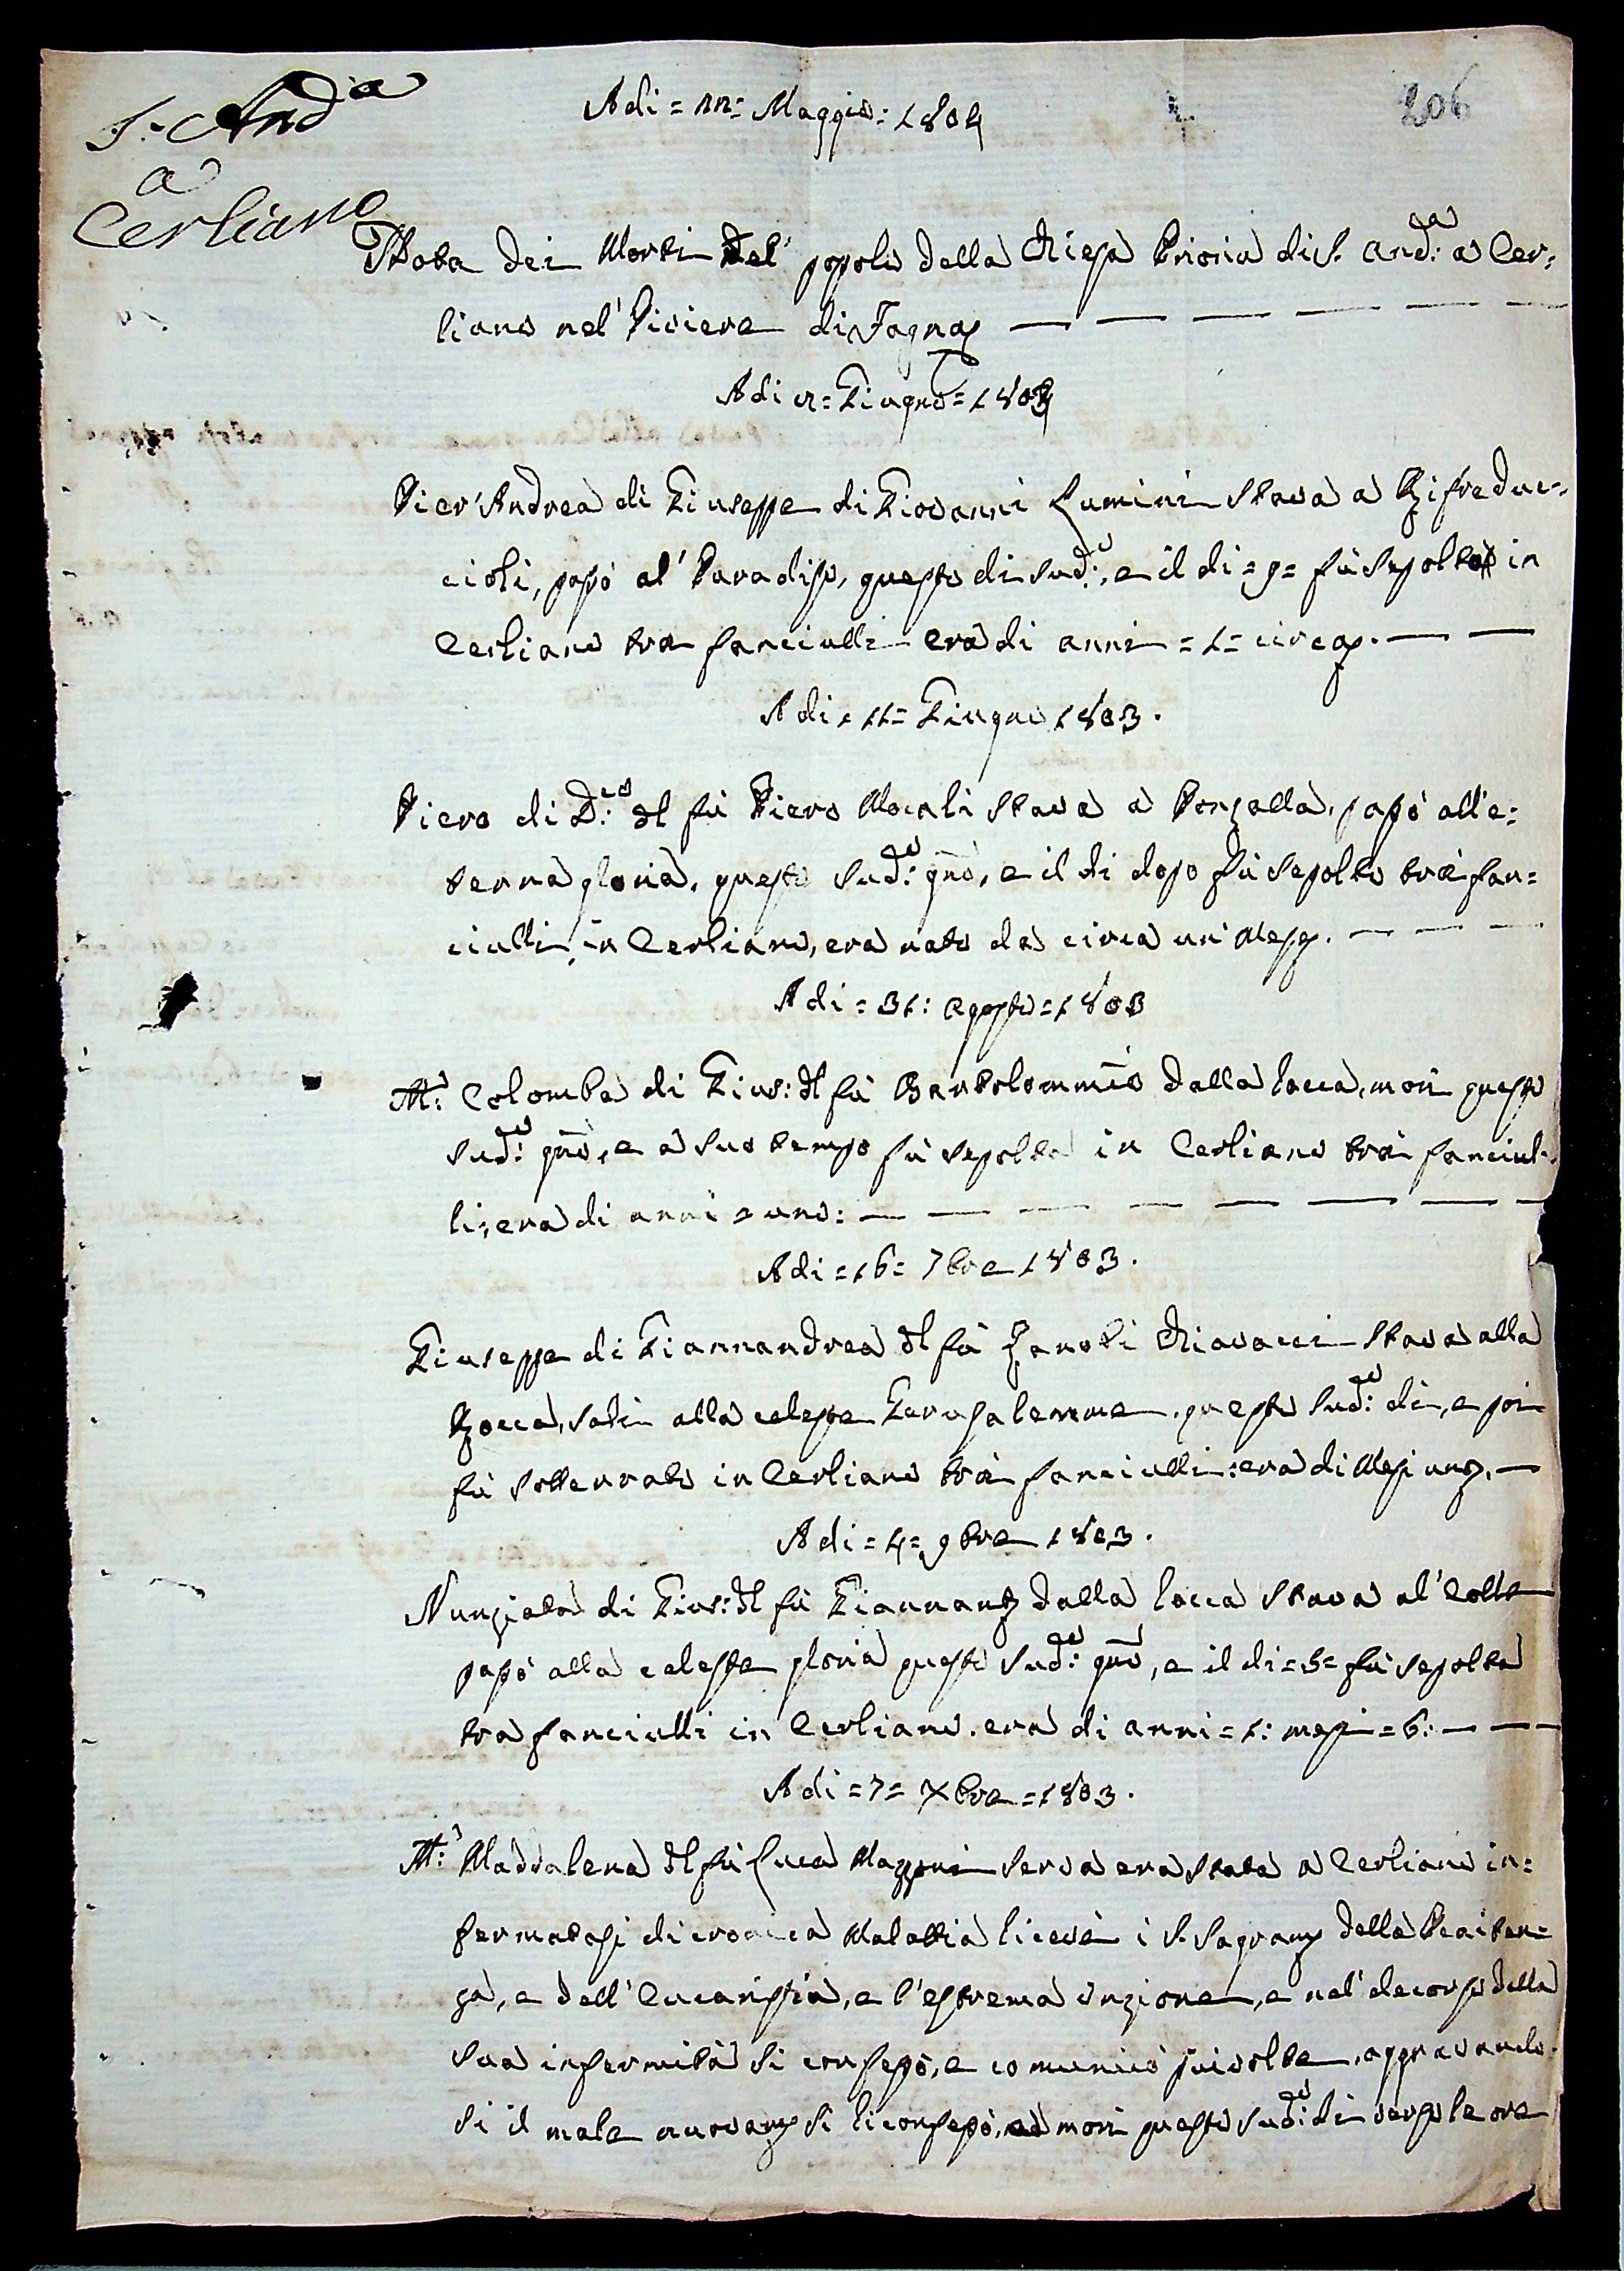 S. And.a
a
Cerliano
Adi = 22 = Maggio: 1804
206
Nota dei Morti del' popolo della Chiesa Prioria di S. And:a a Cer=
liano nel' Piviere di Fagna
Adi 2 = Giugno = 1803
Pier' Andrea di Giuseppe di Giovanni Lumini stava a Rifreduc=
cioli, passò al' Paradiso, questo di sud:o, e il di = 9 = fù sepolto in
Cerliano tra fanciulli era di anni = 1 = circa.
Adi = 11 = Giugno 1803.
Piero di D:co del fù Piero Mocali stava a Senzalla, passò all'e=
terna gloria, questo sud:o gno, e il di dopo fù sepolto trà fan=
ciulli, in Cerliano, era nato da circa un' Mese.
Adi = 31: Agosto = 1803
M:a Colomba di Gius: del fù Bartolommeo dalla Rocca, morì questo
sud:o gno, e a suo tempo fù sepolta in Cerliano trà fanciul=
li, era di anni = uno:
Adi = 16 = 7bre 1803.
Giuseppe di Giannandrea del fù Zanobi Chiavacci stava alla
Rocca, salì alla celeste Gerusalemme, questo sud:o di, e poi
fù sotterrato in Cerliano trà fanciulli: era di Mesi uno.
Adi = 4 = 9bre 1803.
Nunziata di Gius: del fù Giannant.o dalla Rocca stava al' Colle
passò alla celeste gloria questo sud:o gno, e il di = 5 = fù sepolta
tra fanciulli in Cerliano. era di anni = 1: mesi = 6:
Adi = 7 = Xbre = 1803.
M:a Maddalena del fù Luca Mazzoni serva era stata a Cerliano in=
fermatasi di cronica Malattia ricevè i S. Sagram.ti della Peniten=
za, e dell' Eucaristia, e l'estrema unzione, e nel' decorso della
sua infermità si confessò, e comunicò più volte, aggravando=
si il male nuovam.te si riconfessò, morì questo sud:o di verso le ore